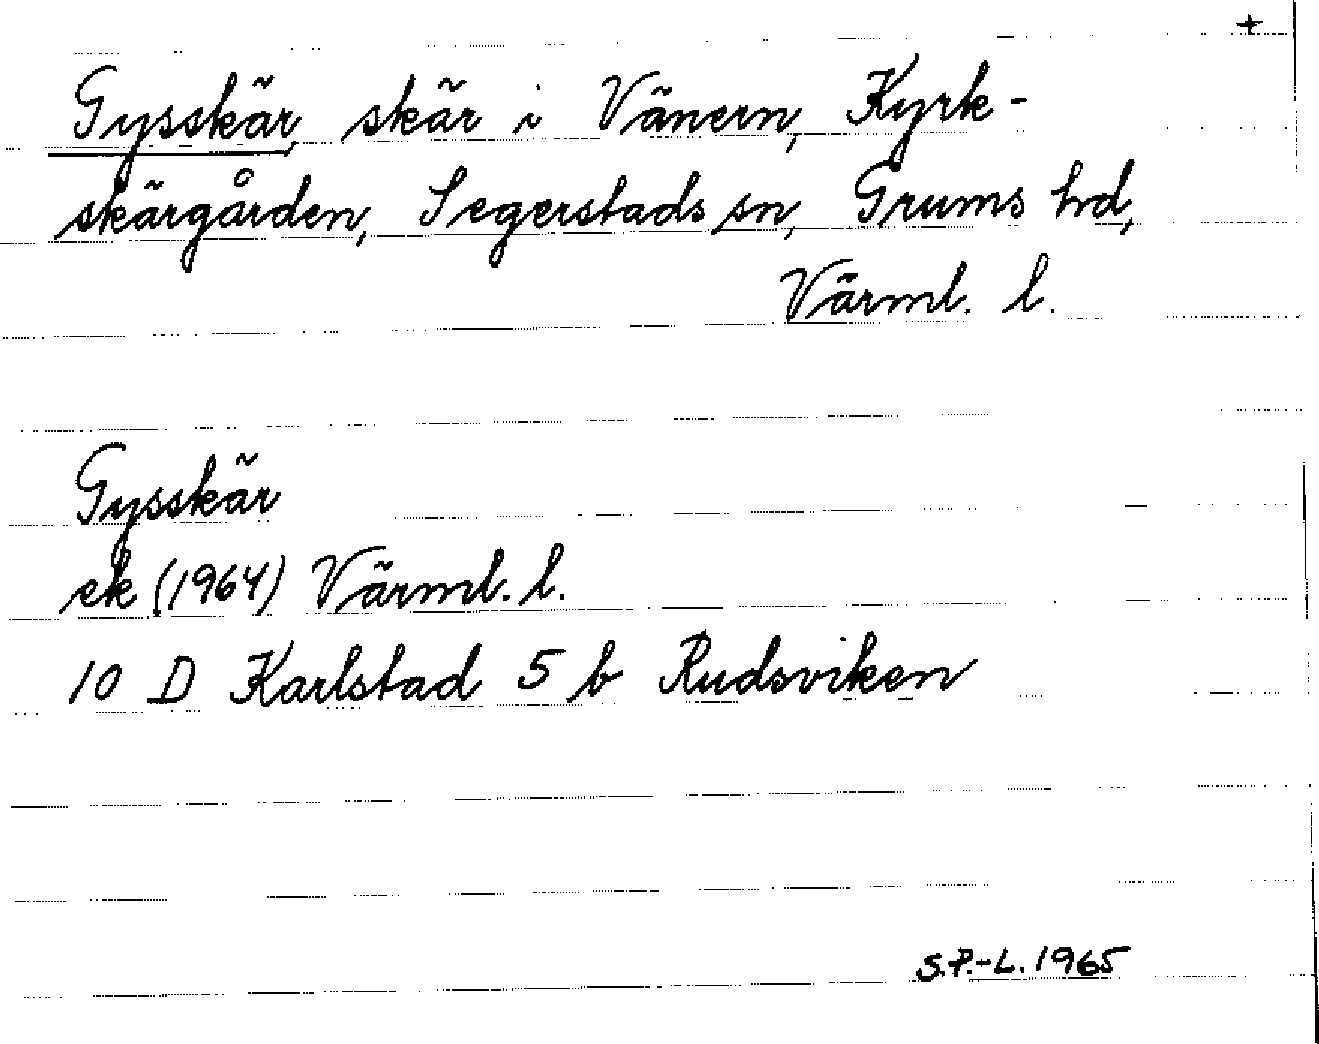 +
Gysskär, skär i Vänern, Kyrk-
skärgården, Segerstads sn, Grums hd,
Värml. l.
Gysskär
ek (1964) Värml. l.
10 D Karlstad 5 b Rudsviken
S.P.-L. 1965